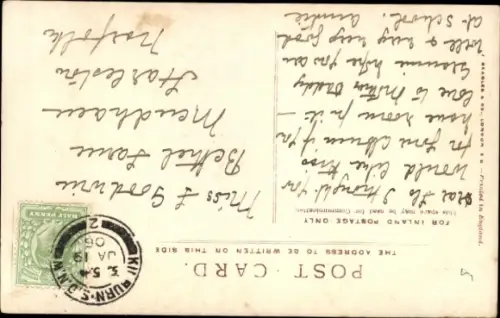 POST CARD.
THE ADDRESS TO BE WRITTEN ON THIS SIDE
FOR INLAND POSTAGE ONLY
This space may be used for Communication
I thought you
would like this
for your album if you
have room for it —
love to Mother Daddy
hope you are
well & very good
at school. Auntie
Miss L Goodwin
Bethel Farm
Mendham
Harleston
Norfolk
HALF PENNY
KILBURN. S.O. N.W.
3.5
JA 19
06
2
Printed in England.